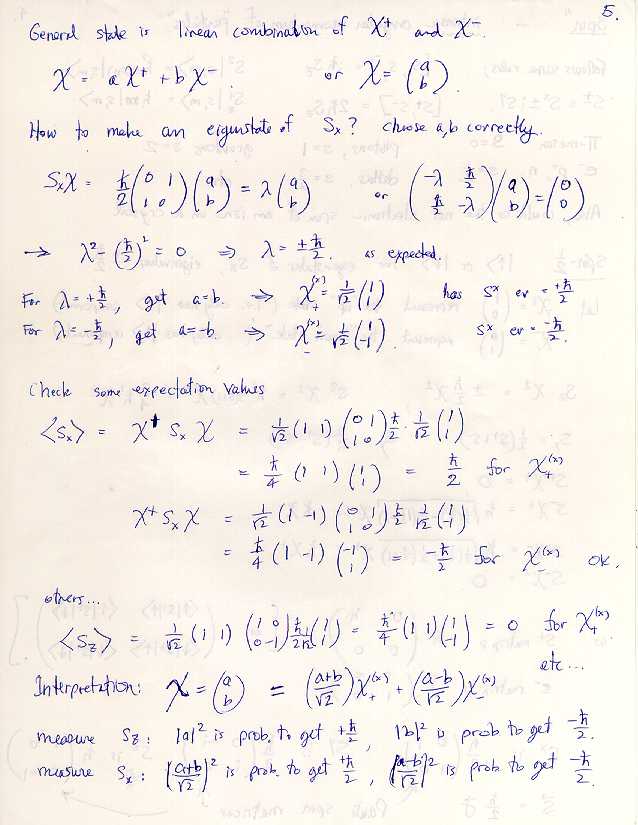 5.
General state is linear combination of χ⁺ and χ⁻.
χ = a χ⁺ + b χ⁻. or χ = (a b).
How to make an eigenstate of Sx? choose a,b correctly.
Sxχ = ħ/2 (0 1 1 0)(a b) = λ(a b) or (-λ ħ/2 ħ/2 -λ)(a b) = (0 0)
→ λ² - (ħ/2)² = 0 ⇒ λ = ±ħ/2. as expected.
For λ = +ħ/2, get a=b. ⇒ χ₊⁽ˣ⁾ = 1/√2 (1 1) has Sˣ ev = +ħ/2
For λ = -ħ/2, get a=-b ⇒ χ₋⁽ˣ⁾ = 1/√2 (1 -1). Sˣ ev = -ħ/2.
Check some expectation values
<Sx> = χ† Sx χ = 1/√2 (1 1) (0 1 1 0) ħ/2 · 1/√2 (1 1)
= ħ/4 (1 1) (1 1) = ħ/2 for χ₊⁽ˣ⁾
χ⁺ Sx χ = 1/√2 (1 -1) (0 1 1 0) ħ/2 1/√2 (1 -1)
= ħ/4 (1 -1) (-1 1) = -ħ/2 for χ₋⁽ˣ⁾ OK.
others...
<Sz> = 1/√2 (1 1) (1 0 0 -1) ħ/2√2 (1 1) = ħ/4 (1 1) (1 -1) = 0 for χ₊⁽ˣ⁾
etc...
Interpretation: χ = (a b) = (a+b/√2) χ₊⁽ˣ⁾ + (a-b/√2) χ₋⁽ˣ⁾
measure Sz: |a|² is prob. to get +ħ/2, |b|² is prob to get -ħ/2.
measure Sx: |a+b/√2|² is prob. to get +ħ/2, |a-b/√2|² is prob to get -ħ/2.